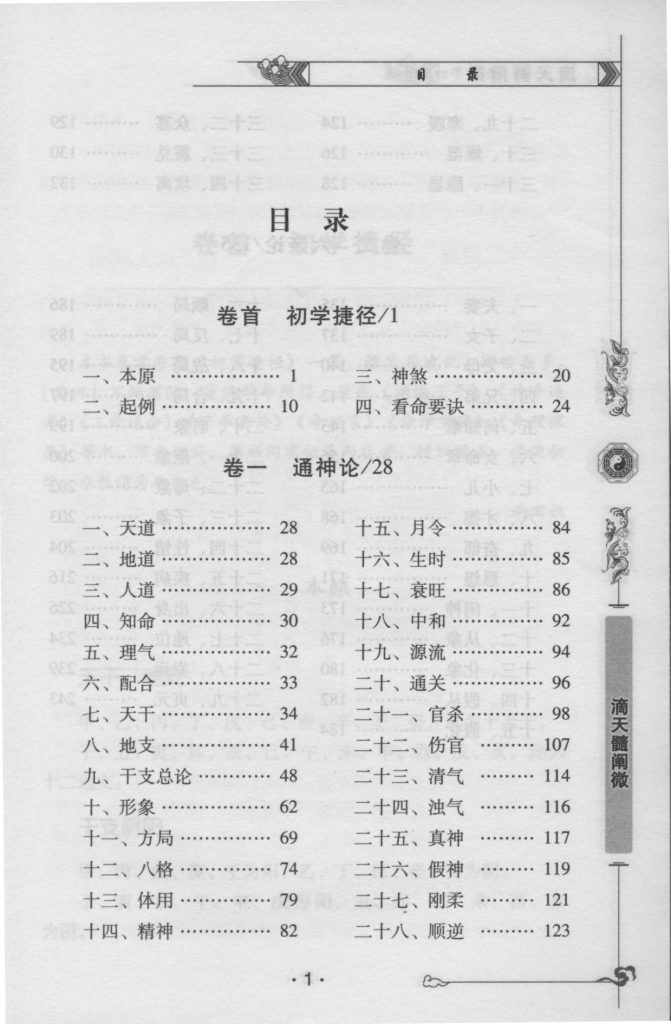 目 录
目 录
卷首 初学捷径/1
一、本原 ………………… 1
二、起例 ………………… 10
三、神煞 ………………… 20
四、看命要诀 …………… 24
卷一 通神论/28
一、天道 ………………… 28
二、地道 ………………… 28
三、人道 ………………… 29
四、知命 ………………… 30
五、理气 ………………… 32
六、配合 ………………… 33
七、天干 ………………… 34
八、地支 ………………… 41
九、干支总论 …………… 48
十、形象 ………………… 62
十一、方局 ……………… 69
十二、八格 ……………… 74
十三、体用 ……………… 79
十四、精神 ……………… 82
十五、月令 ……………… 84
十六、生时 ……………… 85
十七、衰旺 ……………… 86
十八、中和 ……………… 92
十九、源流 ……………… 94
二十、通关 ……………… 96
二十一、官杀 …………… 98
二十二、伤官 ………… 107
二十三、清气 ………… 114
二十四、浊气 ………… 116
二十五、真神 ………… 117
二十六、假神 ………… 119
二十七、刚柔 ………… 121
二十八、顺逆 ………… 123
滴天髓阐微
·1·